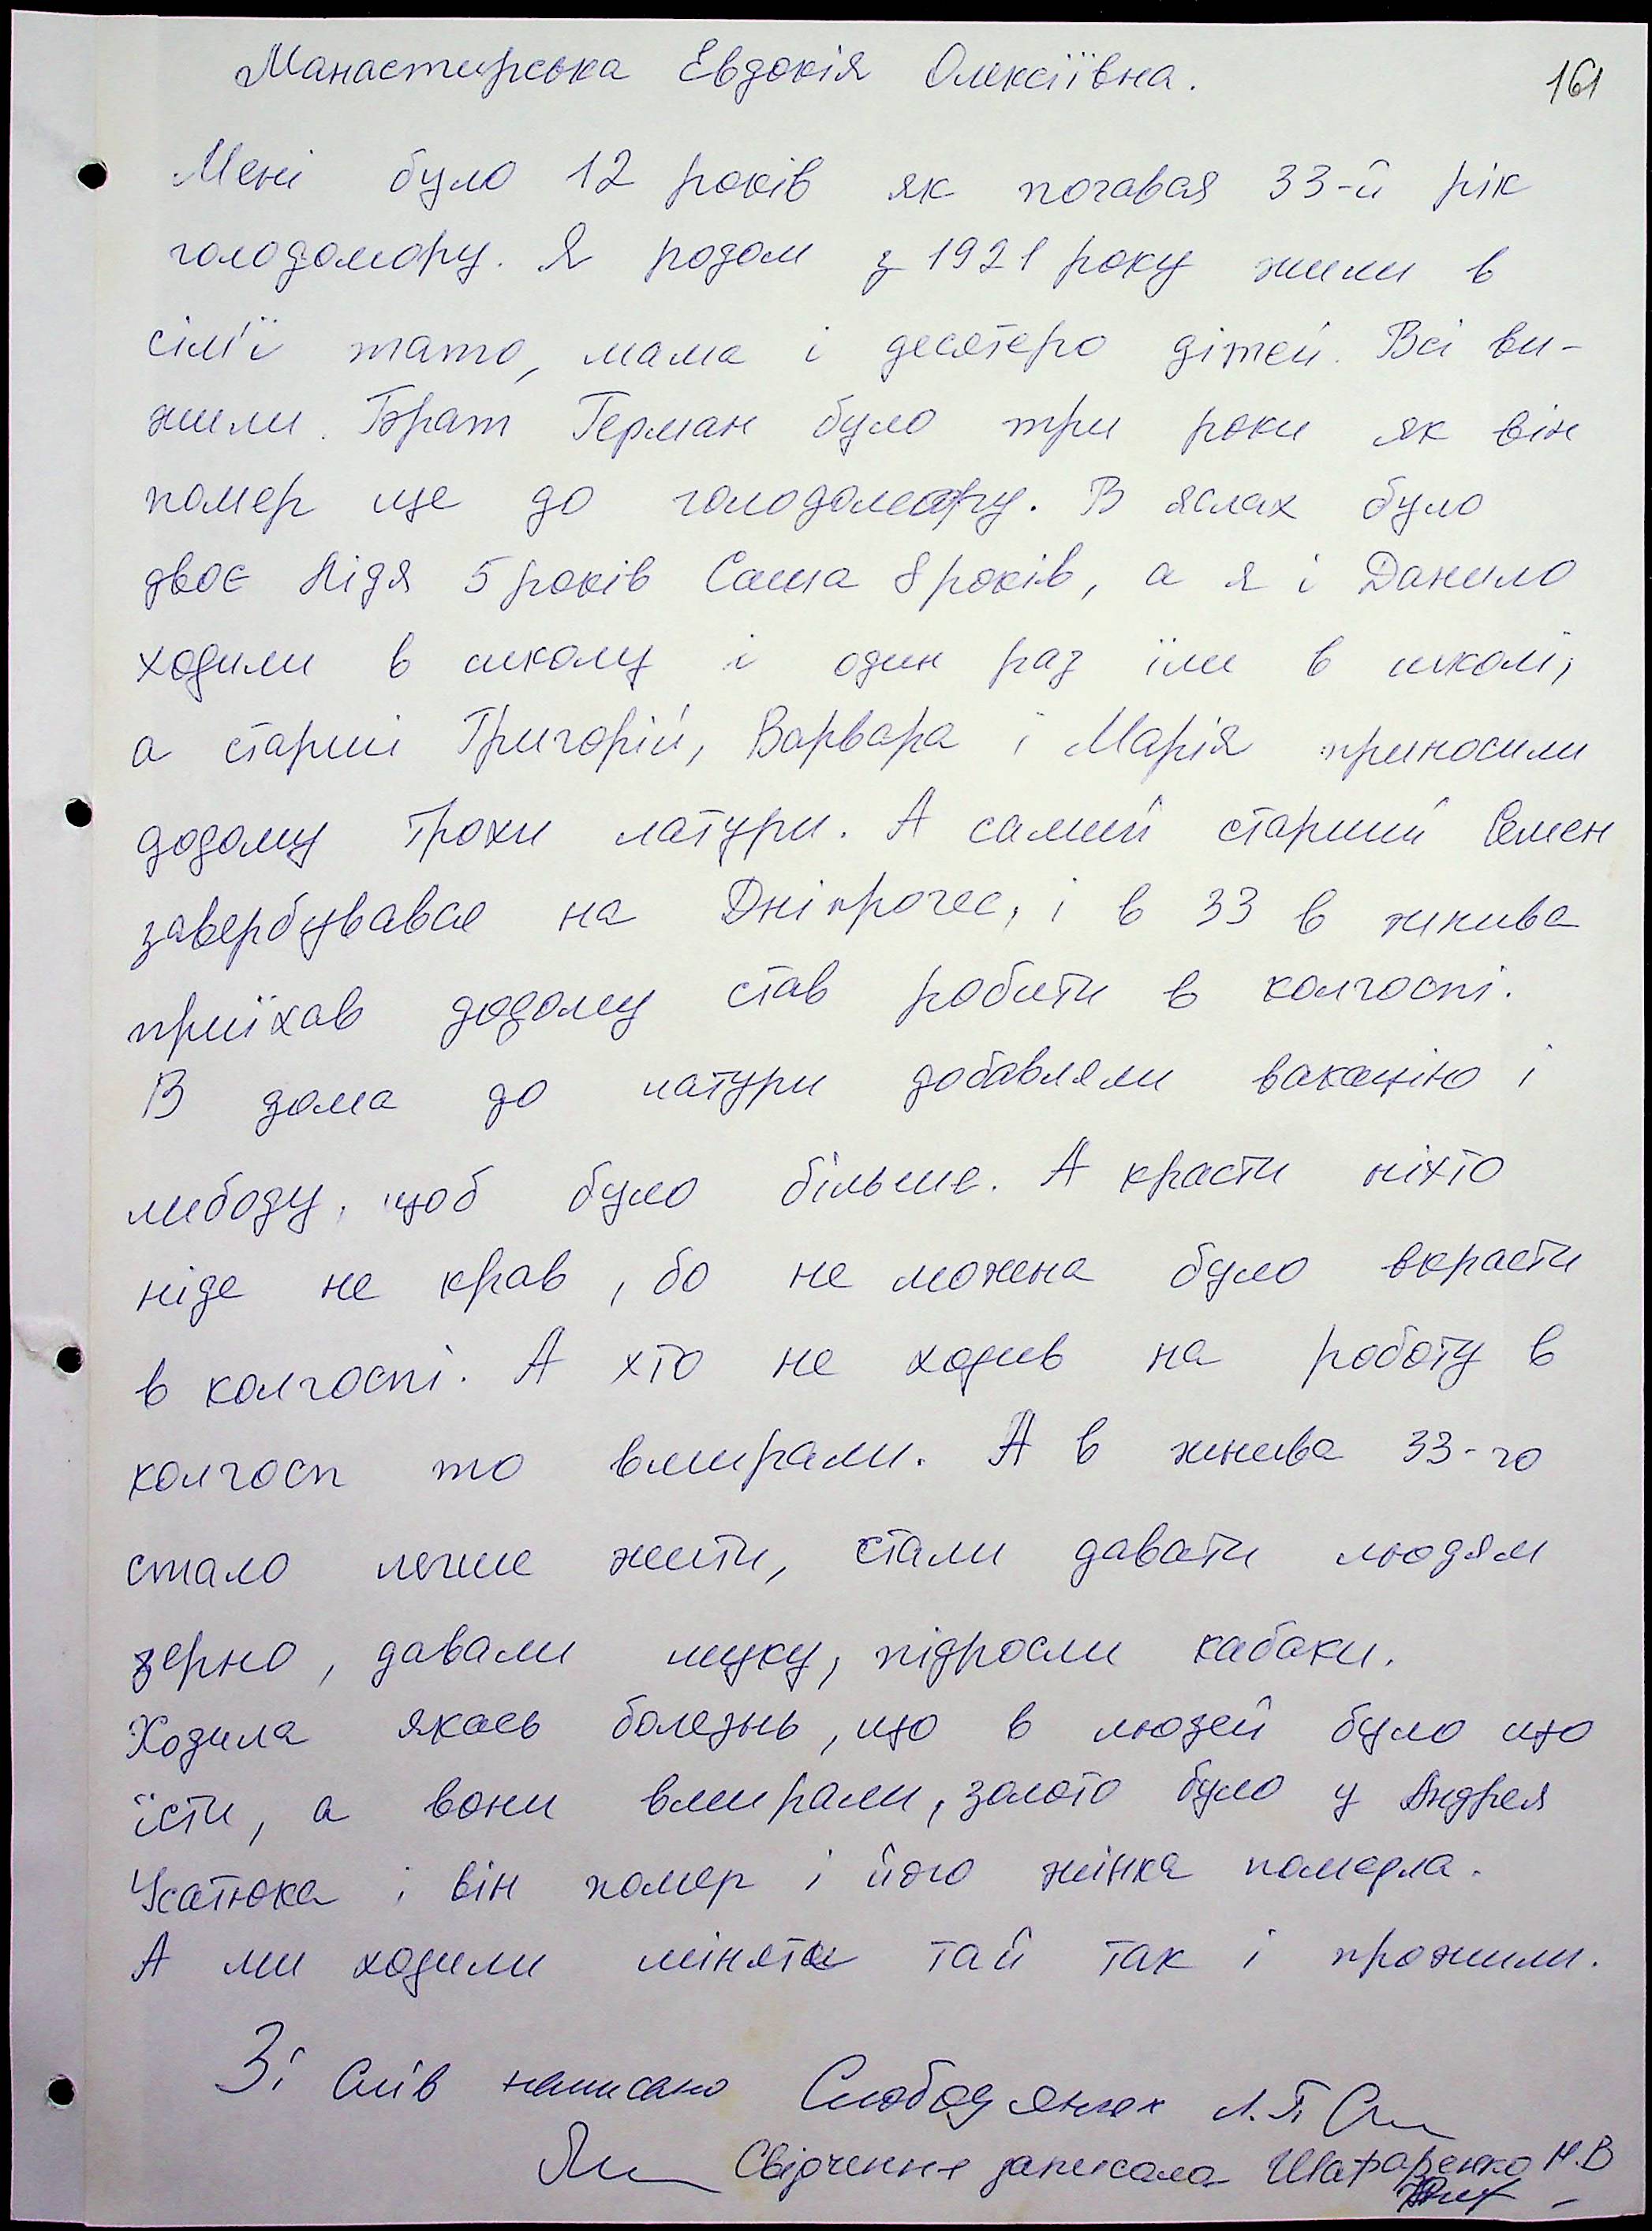 Манастирська Евдокія Олексіївна.
161
Мені було 12 років як почався 33-й рік
голодомору. Я родом з 1921 року жили в
сім'ї тато, мама і десятеро дітей. Всі ви-
жили. Брат Герман було три роки як він
помер ще до голодомору. В яслах було
двоє Лідя 5 років Саша 8 років, а я і Данило
ходили в школу і один раз їли в школі,
а старші Григорій, Варвара і Марія приносили
додому трохи латури. А самий старший Семен
завербувався на Дніпрогес, і в 33 в жнива
приїхав додому став робити в колгоспі.
В дома до латури добавляли вакацію і
либоду, щоб було більше. А красти ніхто
ніде не крав, бо не можна було вкрасти
в колгоспі. А хто не ходив на роботу в
колгосп то вмирали. А в жнива 33-го
стало легше жити, стали давати людям
зерно, давали муку, підросли кабаки.
Ходила якась болезнь, що в людей було що
їсти, а вони вмирали, золото було у Андрея
Усатюка і він помер і його жінка померла.
А ми ходили міняти тай так і прожили.
Зі слів написано Слободянюк Л.П.
Свідчення записала Шафаренко Н.В